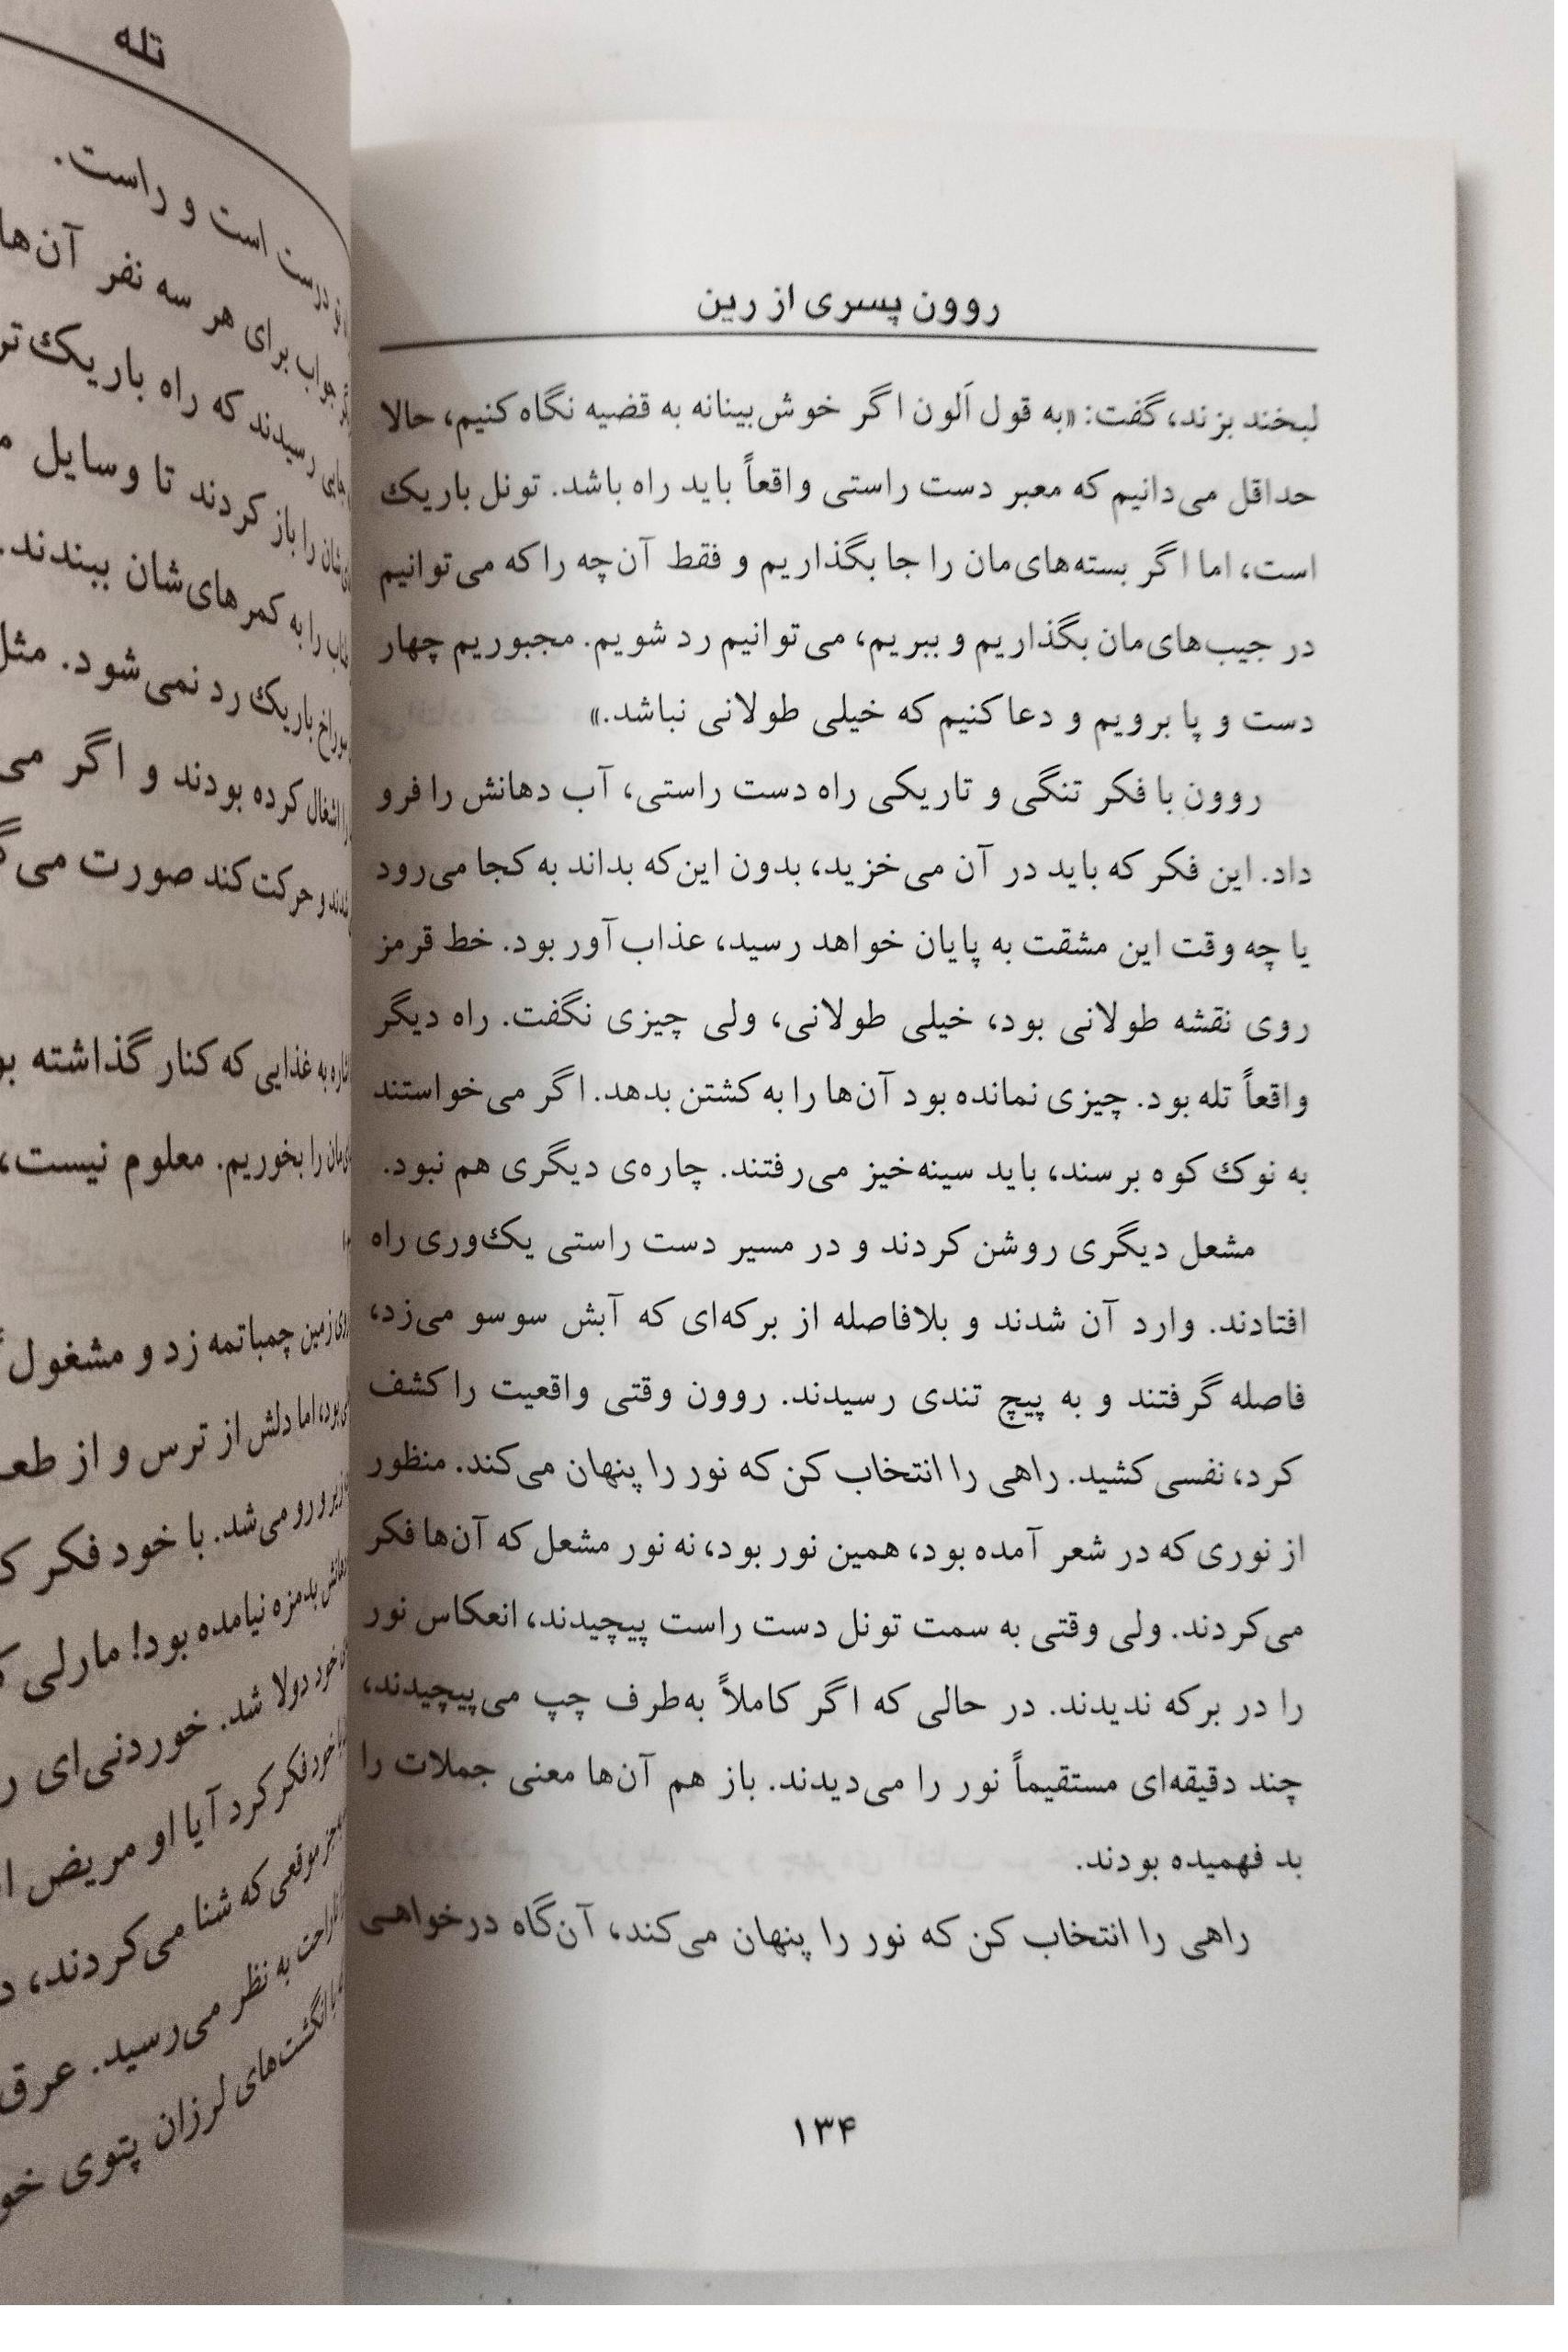 روون پسری از رین
لبخند بزند، گفت: «به قول اَلون اگر خوش‌بینانه به قضیه نگاه کنیم، حالا
حداقل می‌دانیم که معبر دست راستی واقعاً باید راه باشد. تونل باریک
است، اما اگر بسته‌های‌مان را جا بگذاریم و فقط آن‌چه را که می‌توانیم
در جیب‌های‌مان بگذاریم و ببریم، می‌توانیم رد شویم. مجبوریم چهار
دست و پا برویم و دعا کنیم که خیلی طولانی نباشد.»
روون با فکر تنگی و تاریکی راه دست راستی، آب دهانش را فرو
داد. این فکر که باید در آن می‌خزید، بدون این‌که بداند به کجا می‌رود
یا چه وقت این مشقت به پایان خواهد رسید، عذاب‌آور بود. خط قرمز
روی نقشه طولانی بود، خیلی طولانی، ولی چیزی نگفت. راه دیگر
واقعاً تله بود. چیزی نمانده بود آن‌ها را به کشتن بدهد. اگر می‌خواستند
به نوک کوه برسند، باید سینه‌خیز می‌رفتند. چاره‌ی دیگری هم نبود.
مشعل دیگری روشن کردند و در مسیر دست راستی یک‌وری راه
افتادند. وارد آن شدند و بلافاصله از برکه‌ای که آبش سوسو می‌زد،
فاصله گرفتند و به پیچ تندی رسیدند. روون وقتی واقعیت را کشف
کرد، نفسی کشید. راهی را انتخاب کن که نور را پنهان می‌کند. منظور
از نوری که در شعر آمده بود، همین نور بود، نه نور مشعل که آن‌ها فکر
می‌کردند. ولی وقتی به سمت تونل دست راست پیچیدند، انعکاس نور
را در برکه ندیدند. در حالی که اگر کاملاً به‌طرف چپ می‌پیچیدند،
چند دقیقه‌ای مستقیماً نور را می‌دیدند. باز هم آن‌ها معنی جملات را
بد فهمیده بودند.
راهی را انتخاب کن که نور را پنهان می‌کند، آن‌گاه در خواهی
۱۳۴
تله
درست است و راست.
جواب برای هر سه نفر آن‌ها
رسیدند که راه باریک‌تر
را باز کردند تا وسایل
را به کمرهای‌شان ببندند.
باریک رد نمی‌شود. مثل
اشغال کرده بودند و اگر می
و حرکت کند صورت می‌گ
به غذایی که کنار گذاشته بو
را بخوریم. معلوم نیست،
زمین چمباتمه زد و مشغول
اما دلش از ترس و از طعـ
زیر و رو می‌شد. با خود فکر کـ
بدمزه نیامده بود! مارلی
خود دولا شد. خوردنی‌ای ر
خود فکر کرد آیا او مریض ا
موقعی که شنا می‌کردند، د
ناراحت به نظر می‌رسید. عرق
انگشت‌های لرزان پتوی خو